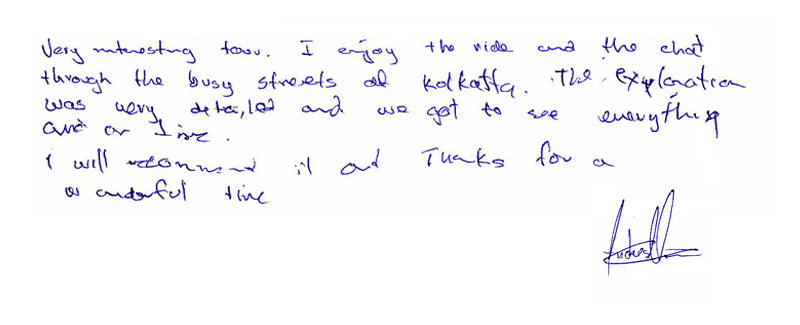 Very interesting tour. I enjoy the ride and the chat
through the busy streets of Kolkatta. The explanation
was very detailed and we got to see everything
and on time.
I will recommend it and Thanks for a
wonderful time